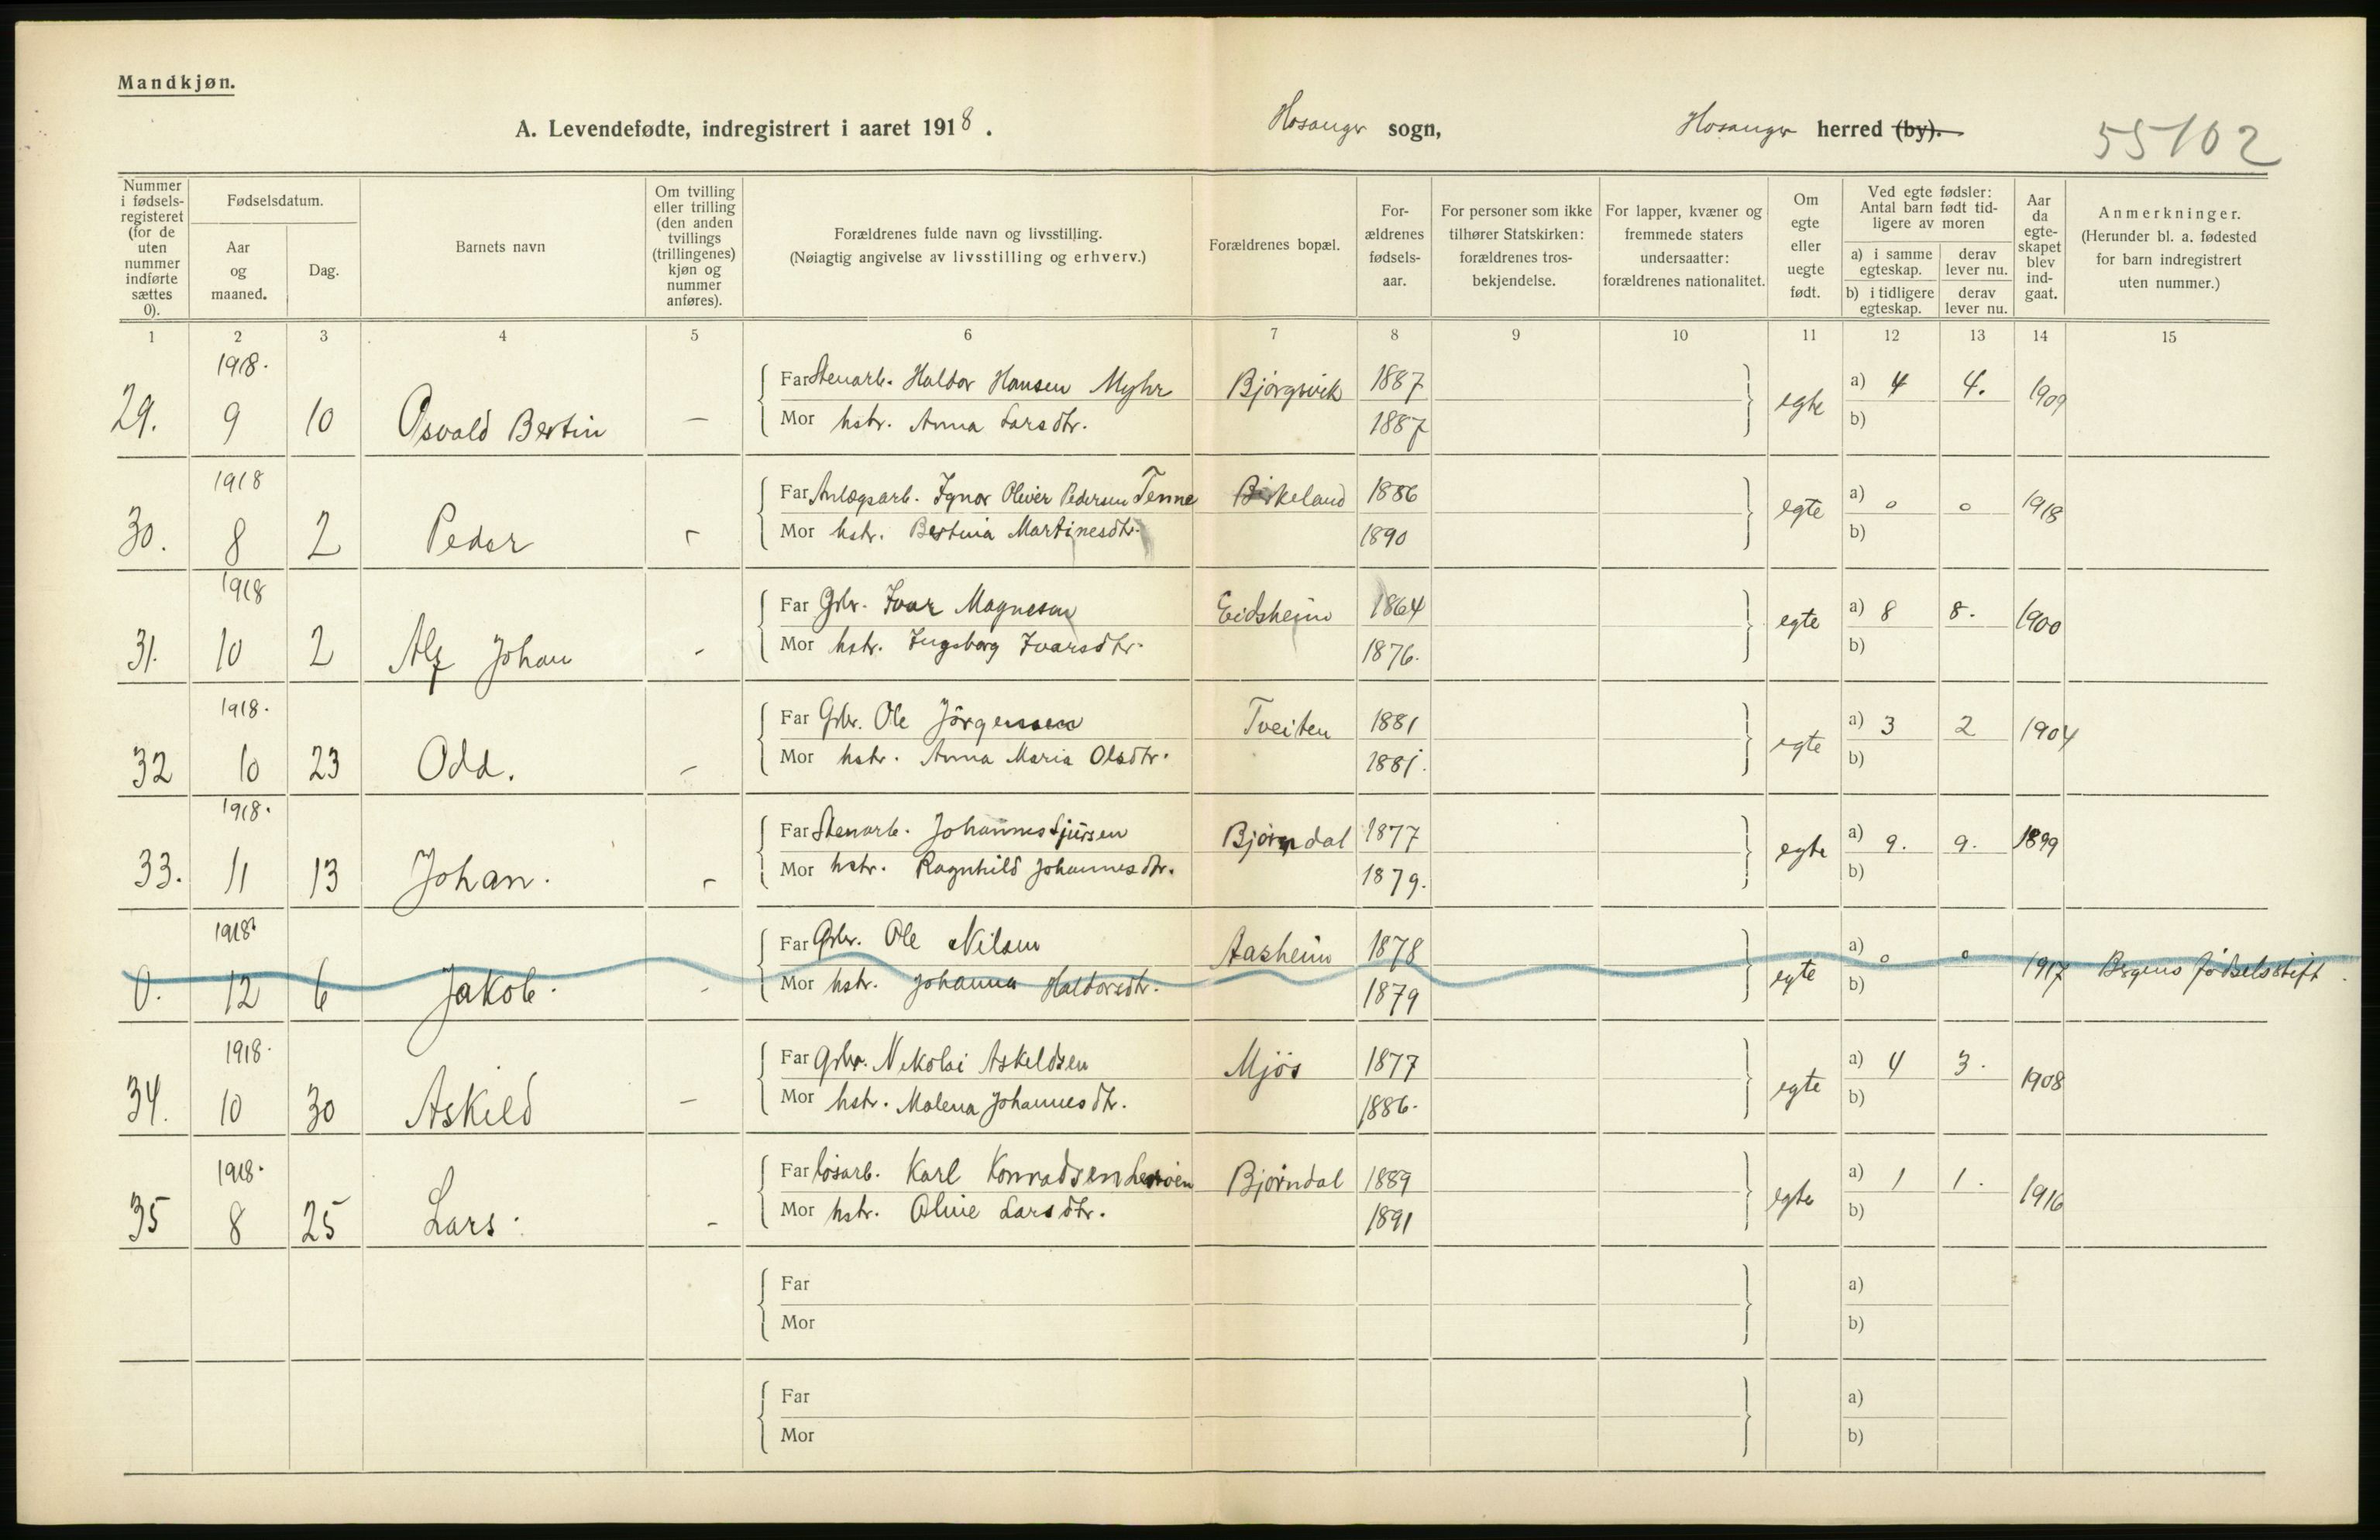 Mandkjøn.
A. Levendefødte, indregistrert i aaret 1918.
Hosanger sogn,
Hosanger herred (by).
55102
Nummer i fødselsregisteret (for de uten nummer indførte sættes 0).
Fødselsdatum.
Aar og maaned.
Dag.
Barnets navn
Om tvilling eller trilling (den anden tvillings (trillingenes) kjøn og nummer anføres).
Forældrenes fulde navn og livsstilling. (Nøiagtig angivelse av livsstilling og erhverv.)
Forældrenes bopæl.
Forældrenes fødselsaar.
For personer som ikke tilhører Statskirken: forældrenes trosbekjendelse.
For lapper, kvæner og fremmede staters undersaatter: forældrenes nationalitet.
Om egte eller uegte født.
Ved egte fødsler: Antal barn født tidligere av moren
a) i samme egteskap.
derav lever nu.
b) i tidligere egteskap.
derav lever nu.
Aar da egteskapet blev indgaat.
Anmerkninger. (Herunder bl. a. fødested for barn indregistrert uten nummer.)
1 2 3 4 5 6 7 8 9 10 11 12 13 14 15
1918.
29. 9 10 Osvald Bertin –
Far Stenarb. Haldor Hansen Myhr Bjørgsvik 1887
Mor hstr. Anna Larsdtr. 1887
egte a) 4 4. 1909
b)
1918
30. 8 2 Peder -
Far Anlægsarb. Ignor Oliver Pedersen Tenne Birkeland 1886
Mor hstr. Bertina Martinesdtr. 1890
egte a) 0 0 1918
b)
1918
31. 10 2 Alf Johan -
Far Grbr. Ivar Magnesen Eidsheim 1864
Mor hstr. Ingeborg Ivarsdtr. 1876.
egte a) 8 8. 1900
b)
1918.
32 10 23 Odd. -
Far Grbr. Ole Jörgensen Tveiten 1881
Mor hstr. Anna Maria Olsdtr. 1881.
egte a) 3 2 1904
b)
1918.
33. 11 13 Johan. -
Far Stenarb. Johannes Sjursen Bjørndal 1877
Mor hstr. Ragnhild Johannesdtr. 1879.
egte a) 9. 9. 1899
b)
1918.
0. 12 6 Jakob. -
Far Grbr. Ole Nilsen Aasheim 1878
Mor hstr. Johanna Haldorsdtr. 1879
egte a) 0 0 1917 Bergens fødselsstift.
b)
1918.
34. 10 30 Askild –
Far Grbr. Nikolai Askeldsen Mjös 1877
Mor hstr. Malena Johannesdtr. 1886.
egte a) 4 3. 1908
b)
1918.
35 8 25 Lars. -
Far løsarb. Karl Konradsen Bjørndal 1889
Mor hstr. Oline Larsdtr. 1891
egte a) 1 1. 1916
b)
Far a)
Mor b)
Far a)
Mor b)